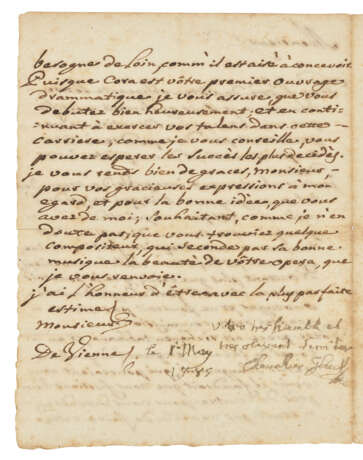 besognes de Loin, comm'il est aisé à concevoir
Puisque Cora est vôtre premier ouvrage
drammatique je vous assure, que vous
debutez bien heureusement; et en conti-
nuant à exercer vos talens dans cette
Carriere, comme je vous conseille, vous
pouvez esperer les succès les plus decidès.
je vous rends bien de graces, Monsieur,
pour vos gracieuses expressions à mon
egard, et pour la bonne idée, que vous
avez de moi; souhaitant, comme je n'en
doute pas, que vous trouviez quelque
compositeur, qui seconde par sa bonne
musique la beauté de vôtre opera, que
je vous renvoie.
j'ai l'honneur d'être avec la plus parfaite
estime
Monsieur
votre tres humble et
De Vienne, le 1 May
tres obeisant serviteur
1785
Chevalier Gluck